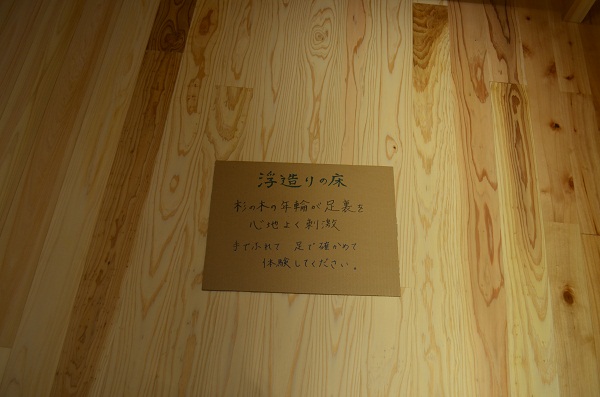 浮造りの床
杉の木の年輪が足裏を
心地よく刺激
手でふれて 足で確かめて
体験してください。